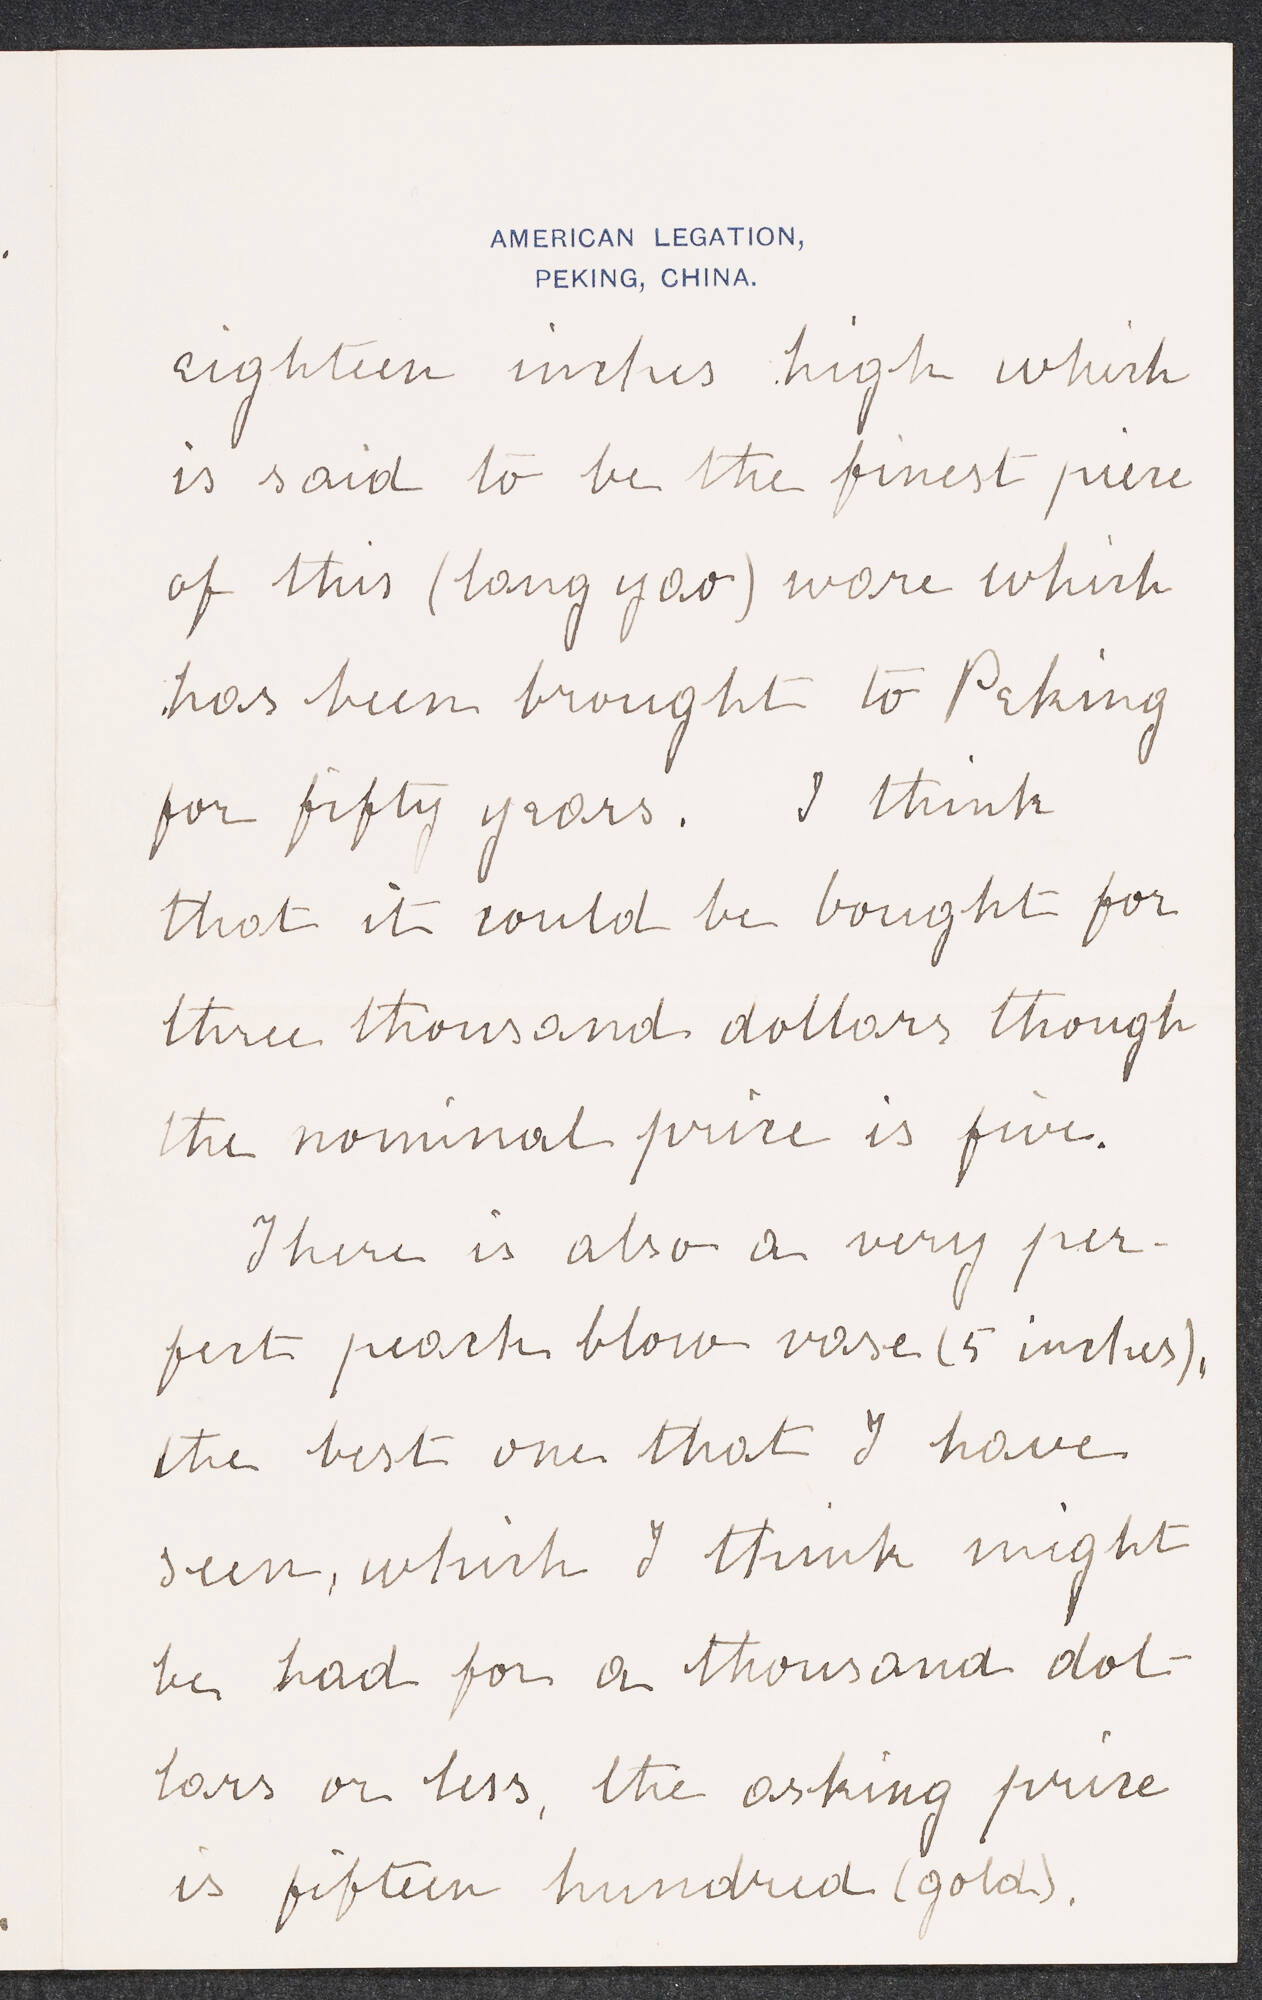 AMERICAN LEGATION,
PEKING, CHINA.
eighteen inches high which
is said to be the finest piece
of this (lang yao) ware which
has been brought to Peking
for fifty years. I think
that it could be bought for
three thousand dollars though
the nominal price is five.
There is also a very per-
fect peach blow vase (5 inches),
the best one that I have
seen, which I think might
be had for a thousand dol-
lars or less, the asking price
is fifteen hundred (gold).